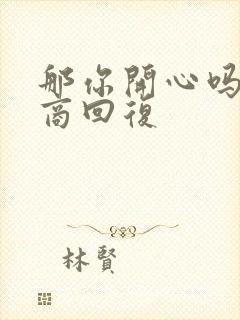 那你開心吗
商回復
林賢